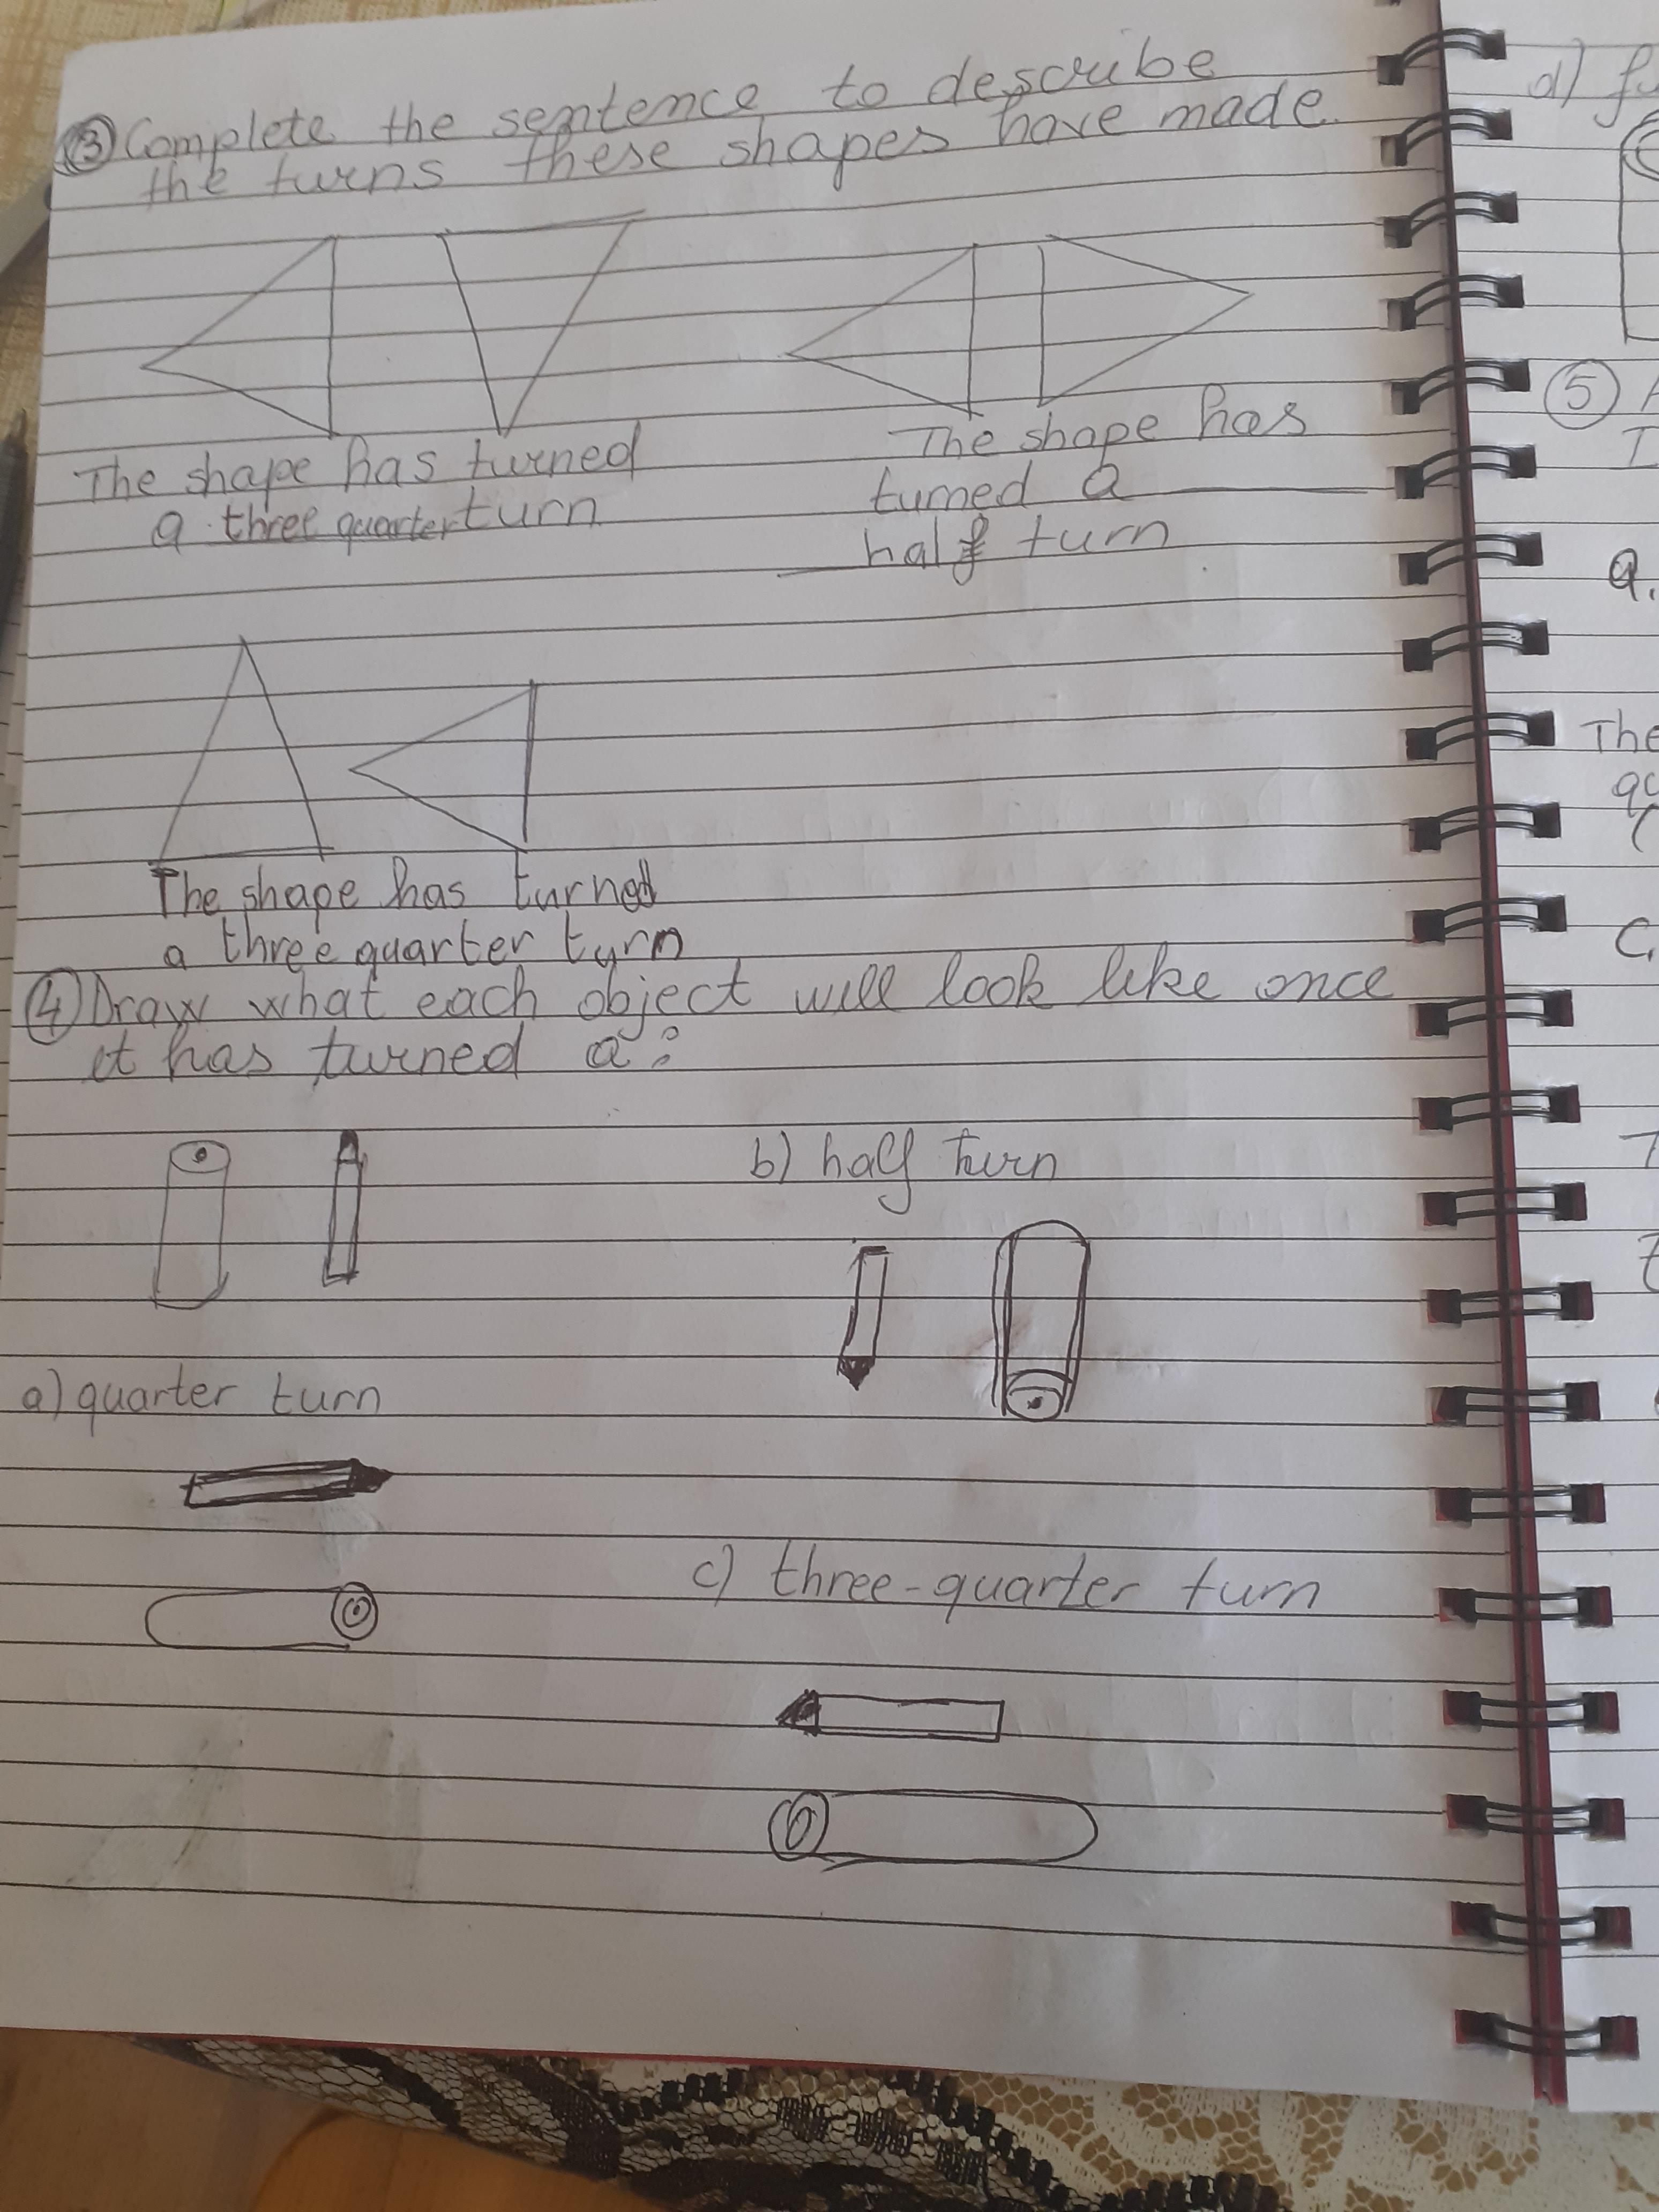 ③ Complete the sentence to describe
the turns these shapes have made.
The shape has turned
a three quarter turn
The shape has
turned a
half turn
The shape has turned
a three quarter turn
④ Draw what each object will look like once
it has turned a:
b) half turn
a) quarter turn
c) three-quarter turn
d) fu
⑤ A
I
a.
The
qu
c.